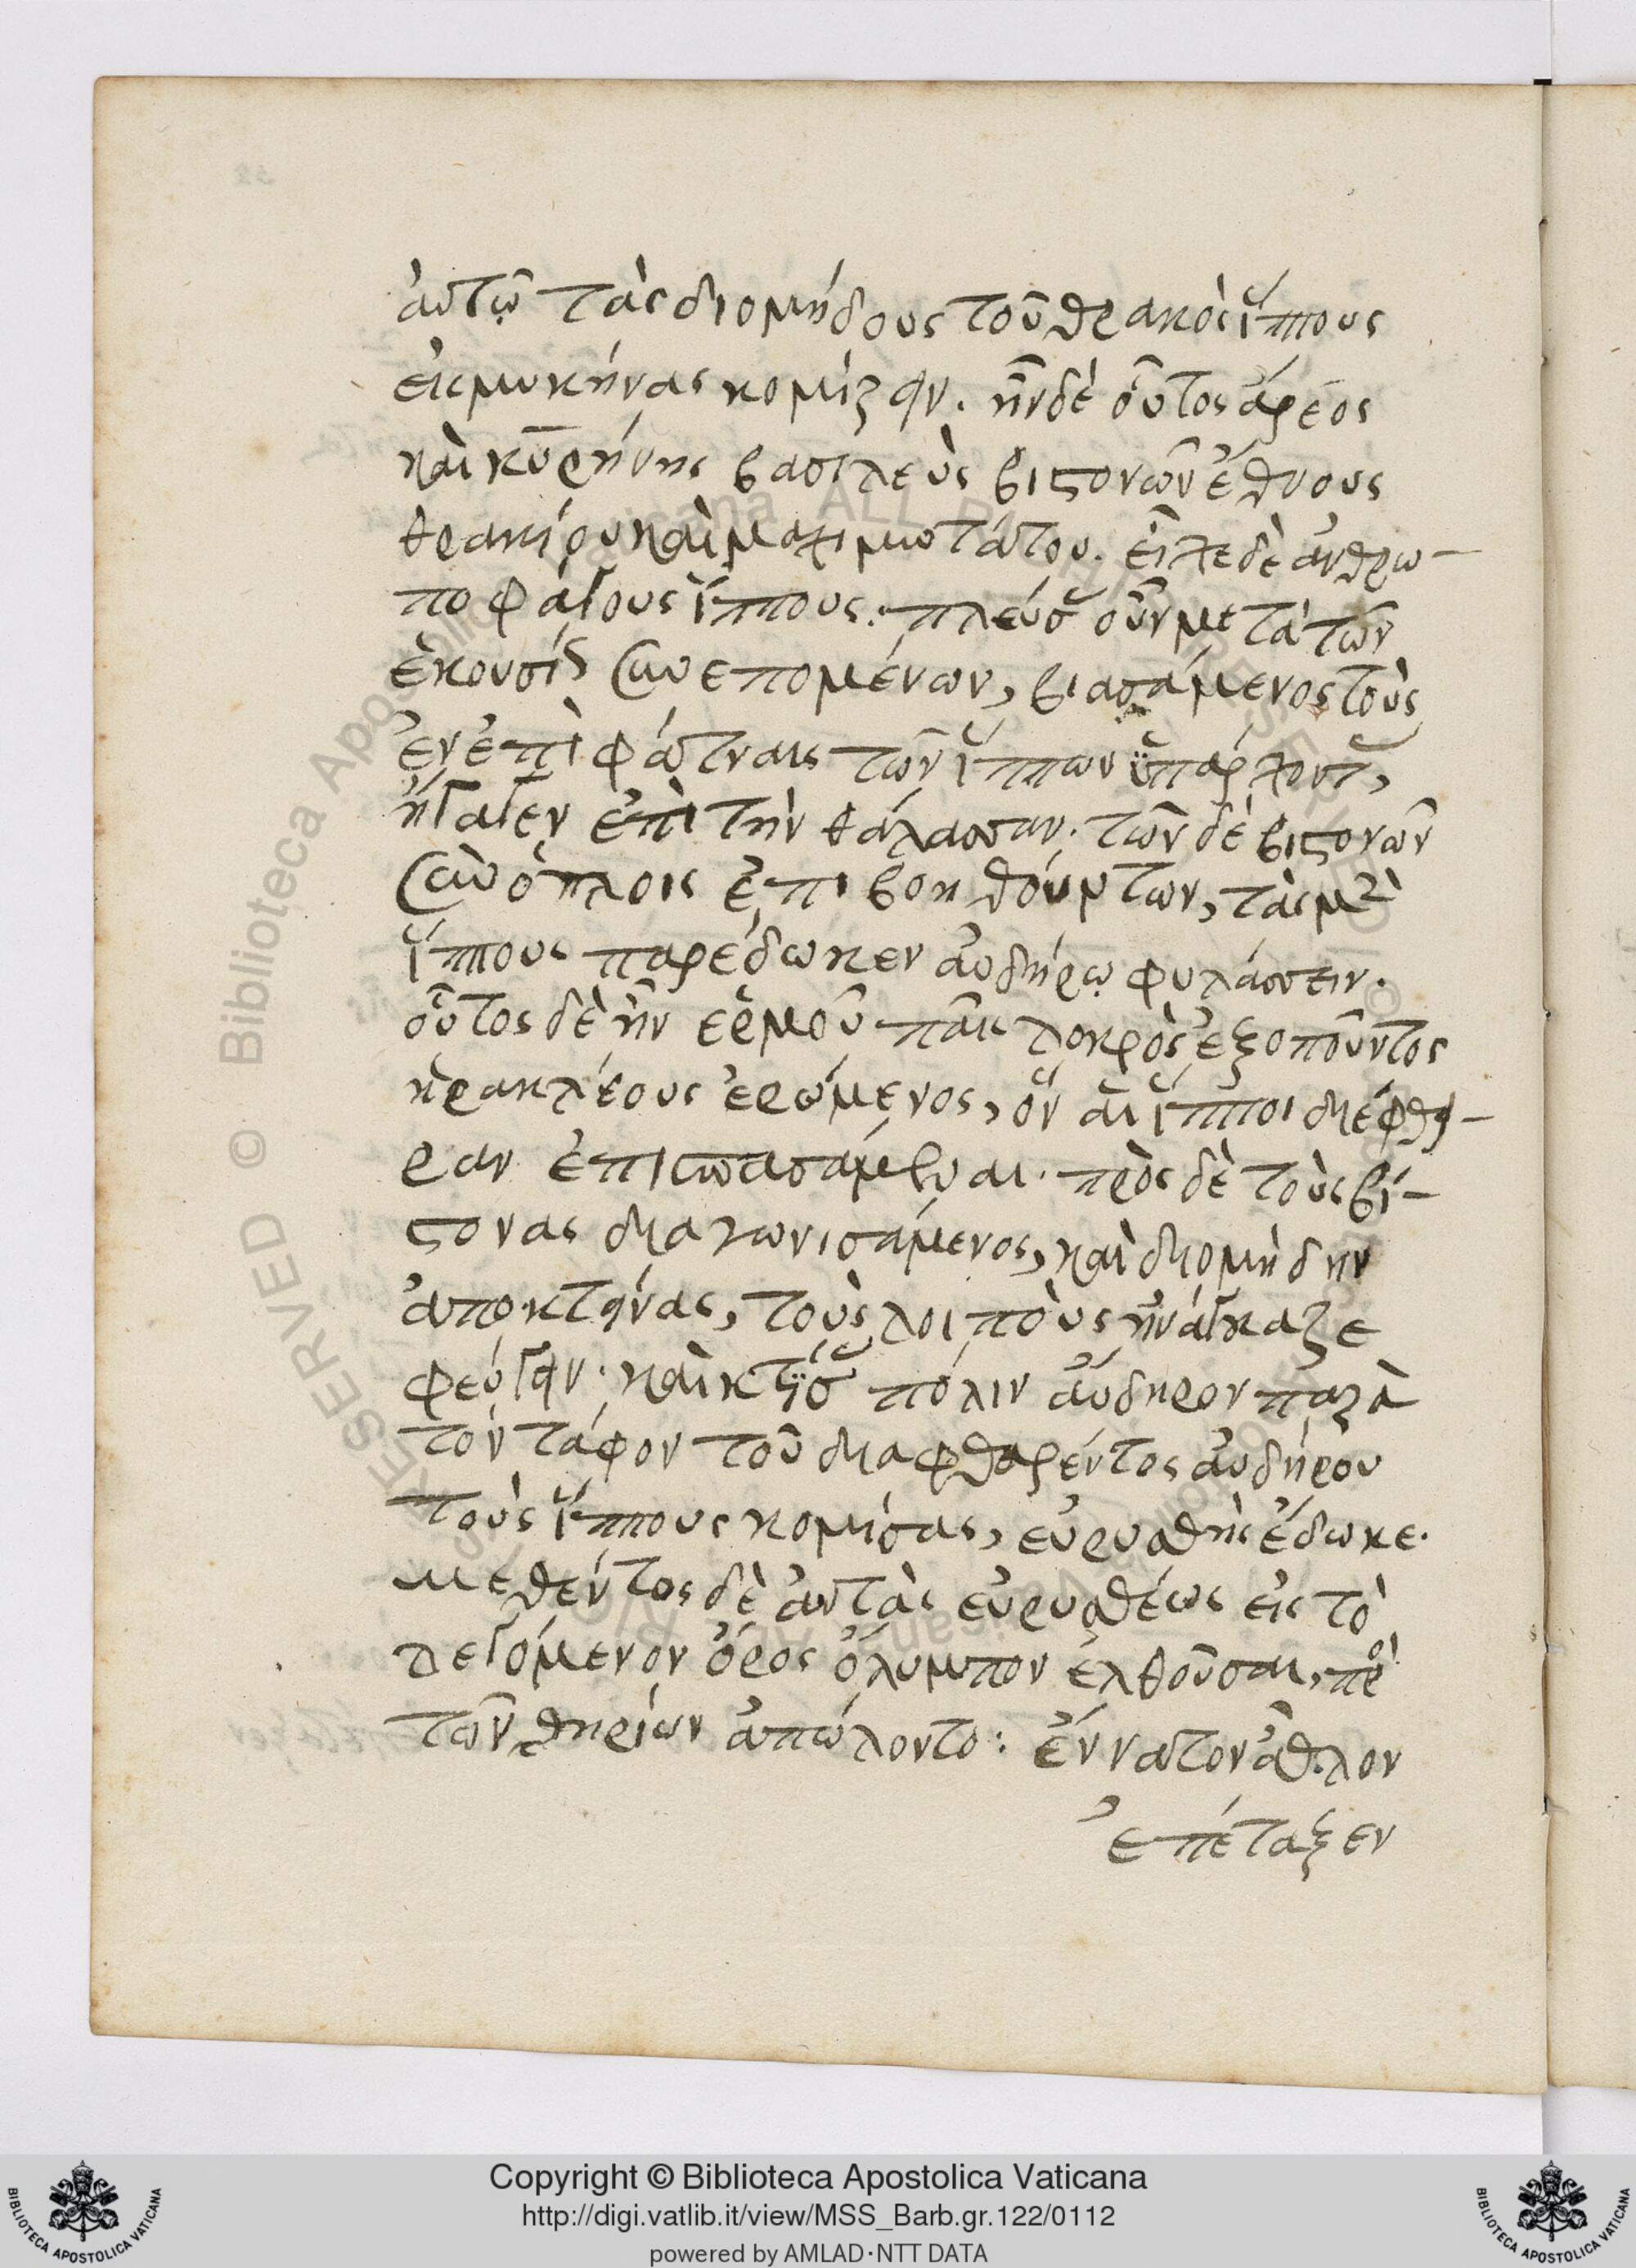 αὐτῷ τὰς διομήδους τοῦ θρακὸς ἵππους
εἰς μυκήνας κομίζειν. ἦν δὲ οὗτος ἄρεος
καὶ κυρήνης βασιλεὺς βιστονῶν ἔθνους
θρακίου καὶ μαχιμωτάτου. εἶχε δὲ ἀνθρω-
ποφάγους ἵππους. πλεύσας οὖν μετὰ τῶν
ἑκουσίως συνεπομένων, βιασάμενος τοὺς
ἐν ἐπὶ φάτναις τῶν ἵππων ὑπάρχοντας,
ἤγαγεν ἐπὶ τὴν θάλασσαν. τῶν δὲ βιστονῶν
σὺν ὅπλοις ἐπιβοηθούντων, τὰς μὲν
ἵππους παρέδωκεν αὐδήρῳ φυλάσσειν.
οὗτος δὲ ἦν ἑρμοῦ παῖς λοκρὸς ἐξ ὀποῦντος
ἡρακλέους ἐρώμενος, ὃν αἱ ἵπποι διέφθει-
ραν ἐπισπασάμεναι. πρὸς δὲ τοὺς βί-
στονας διαγωνισάμενος, καὶ διομήδην
ἀποκτείνας, τοὺς λοιποὺς ἠνάγκαζε
φεύγειν. καὶ κτίσας πόλιν αὔδηρον παρὰ
τὸν τάφον τοῦ διαφθαρέντος αὐδήρου
τοὺς ἵππους κομίσας, εὐρυσθεῖ ἔδωκε.
μεθέντος δὲ αὐτὰς εὐρυσθέως εἰς τὸ
λεγόμενον ὄρος ὄλυμπον ἐλθοῦσαι, πρὸ
τῶν θηρίων ἀπώλοντο: ἔννατον ἆθλον
ἐπέταξεν
Copyright © Biblioteca Apostolica Vaticana
http://digi.vatlib.it/view/MSS_Barb.gr.122/0112
powered by AMLAD·NTT DATA